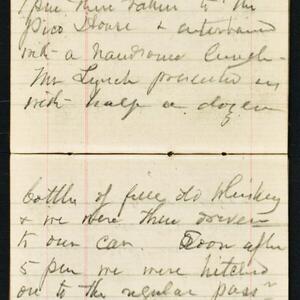 1 pm then taken to the
Pico House & entertained
with a handsome lunch -
Mr Lynch presented us
with half a dozen
bottles of fine old Whiskey
& we were then driven
to our car. Soon after
5 pm we were hitched
on to the regular pass^r